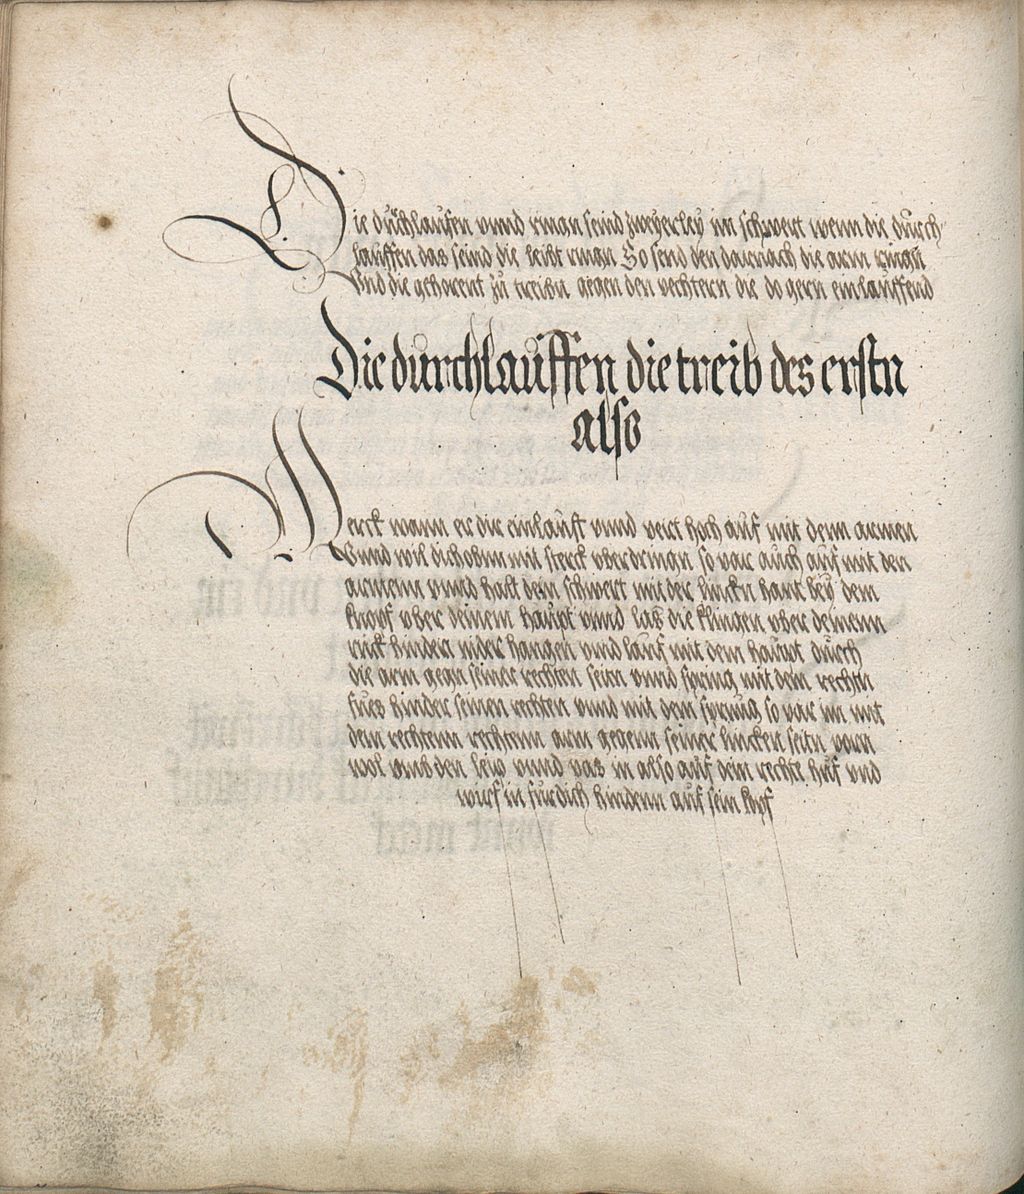 Die durchlauffen vnnd ringn seind zweyerley im schwert wenn die durch
lauffen das seind die leibt ringn So send den darnach die arm ringn
Vnd die gehorent zu treibn gegen den vechtern die do gern einlauffend
Die durchlauffen die treib des erstn
also
Merck wann er dir einlaufft vnnd vert hoch auf mit denn armen
Vnnd wil dich obnn mit sterck vberdringn so var auch auf mit den
armenn vnnd halt dein schwert mit der lincken hant bey dem
knopf vber deinem haupt vnnd las die klingen vber deinenn
ruck hinden nider hangen vnd lauf mit dem haupt durch
die arm gegn seiner rechten seitn vnnd spring mit dem rechtn
fues hinder seinen rechten vnnd mit dem sprung so var im mit
dem rechtenn rechtenn arm gegenn seiner lincken seitn vorn
wol vmb den leib vnnd vas in also auf dein rechte huf vnd
wurf in fur dich hindenn auf sein kopf